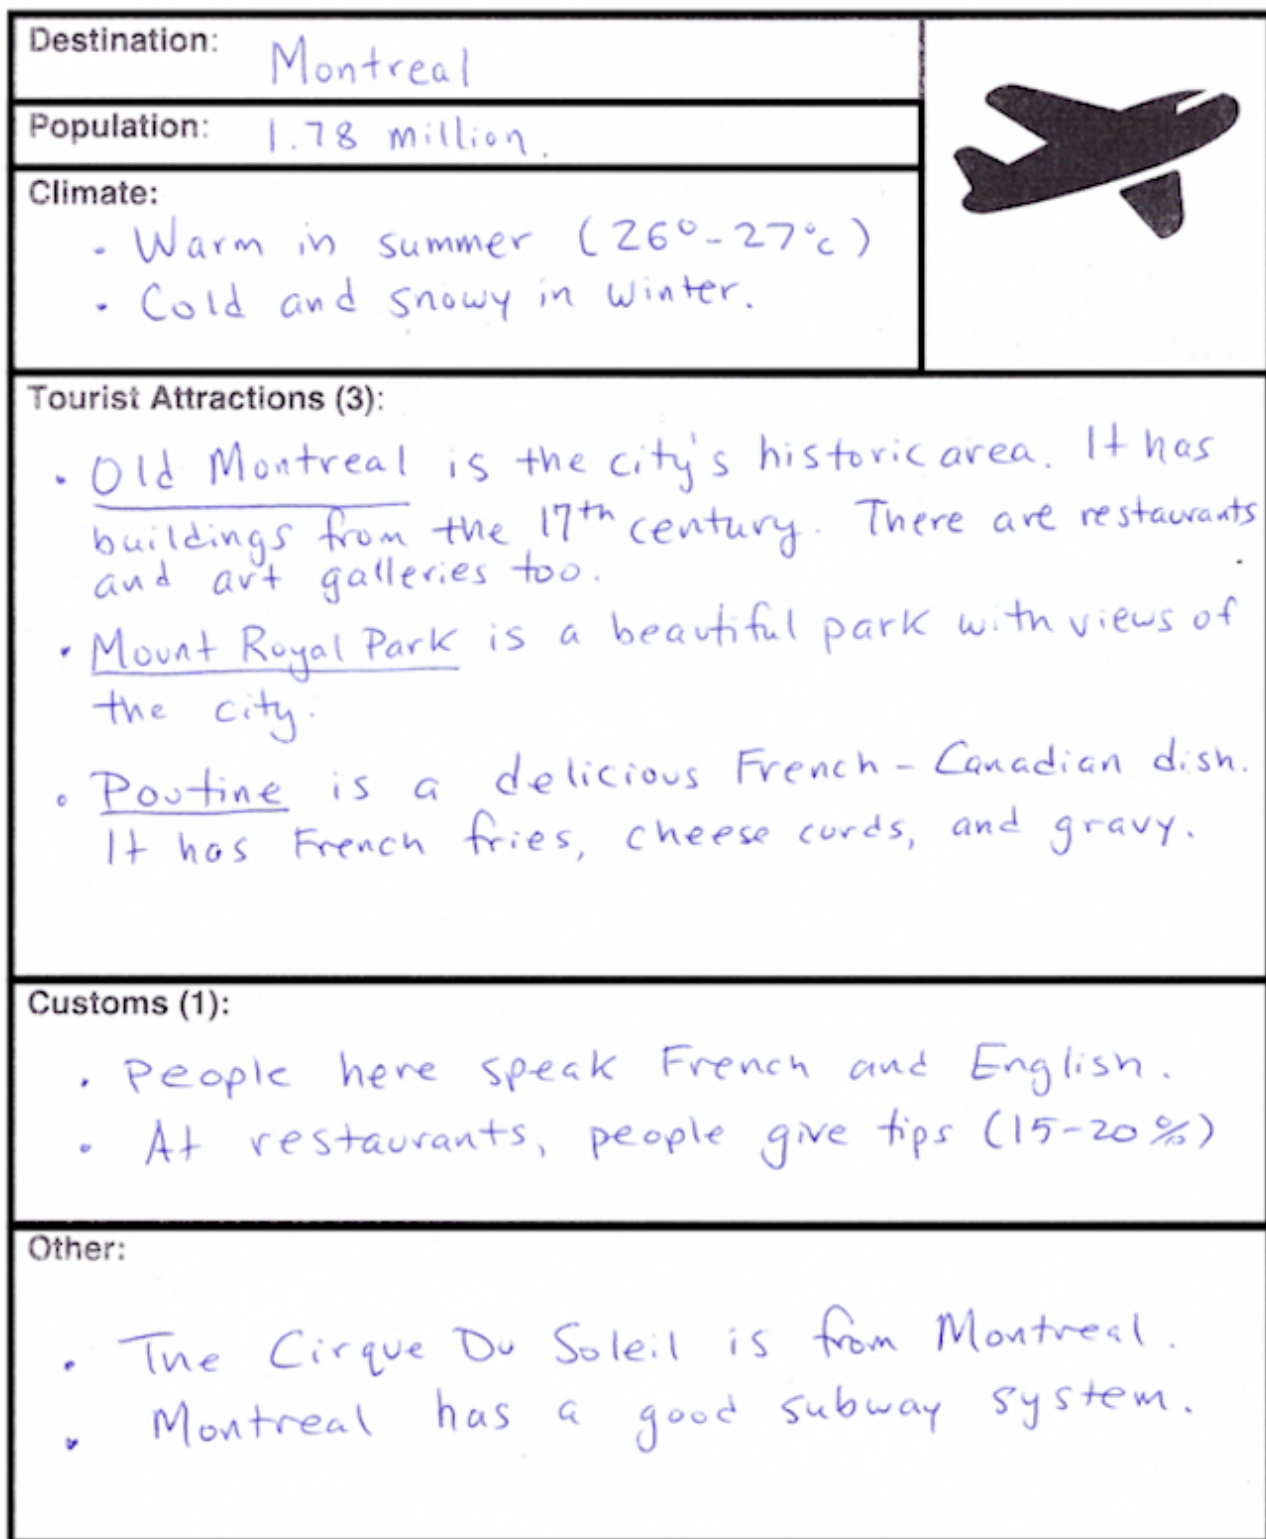 Destination: Montreal
Population: 1.78 million.
Climate:
• Warm in summer (26°-27°c)
• Cold and snowy in winter.
Tourist Attractions (3):
• Old Montreal is the city's historic area. It has
buildings from the 17th century. There are restaurants
and art galleries too.
• Mount Royal Park is a beautiful park with views of
the city.
• Poutine is a delicious French-Canadian dish.
It has French fries, cheese curds, and gravy.
Customs (1):
• People here speak French and English.
• At restaurants, people give tips (15-20%)
Other:
• The Cirque Du Soleil is from Montreal.
• Montreal has a good subway system.